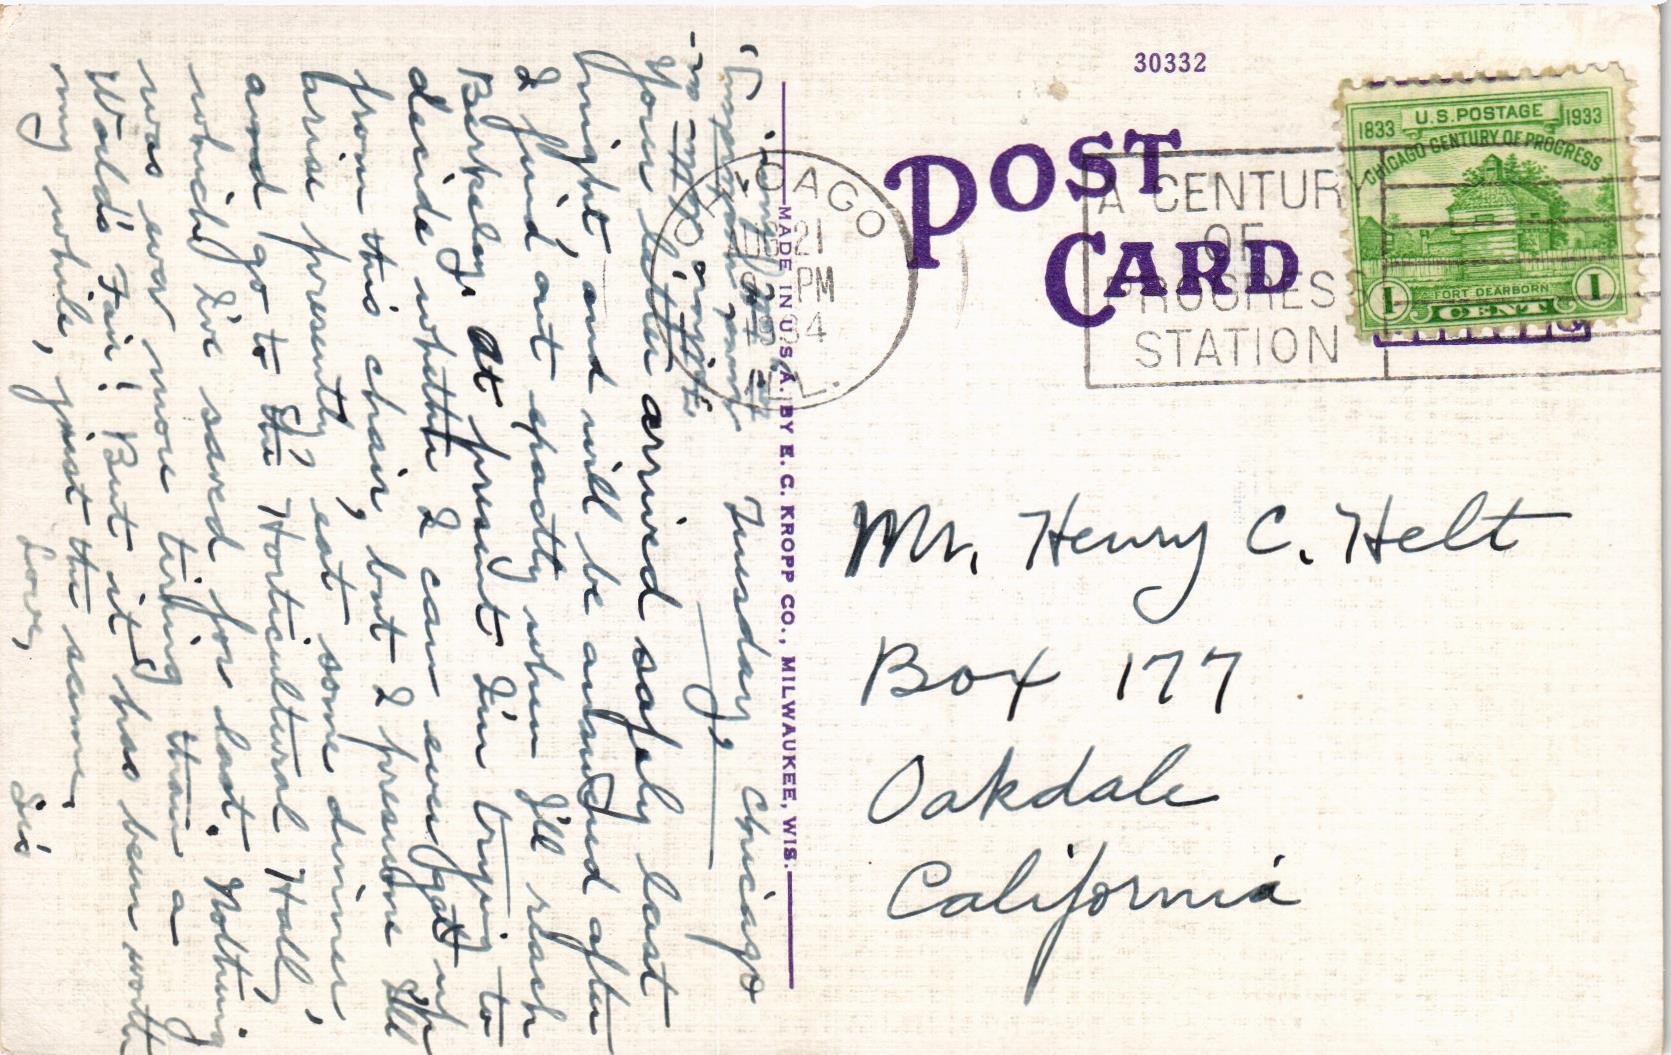 30332
POST
CARD
U.S. POSTAGE
1833
1933
CHICAGO CENTURY OF PROGRESS
FORT DEARBORN
1 CENT 1
CHICAGO
AUG 21
PM
1934
ILL.
A CENTURY
OF
PROGRESS
STATION
MADE IN U.S.A. BY E. C. KROPP CO., MILWAUKEE, WIS.
Mr. Henry C. Helt
Box 177
Oakdale
California
Tuesday, Chicago
Your letter arrived safely last
night, and will be answered after
I find out exactly when I'll reach
Berkeley. At present I'm trying to
decide whether I can ever get up
from this chair, but I presume I'll
arise presently, eat some dinner
and go to the Horticultural Hall,
which I've saved for last. Nothing
was ever more tiring than a
World's Fair! But it has been worth
my while, just the same.
Love,
Sis